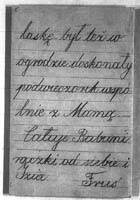 laskę był też w
ogrodzie doskonały
podwieczorek wspó
lnie z Mamą.
Całuję Babuni
rączki od siebie i
Izia Truś